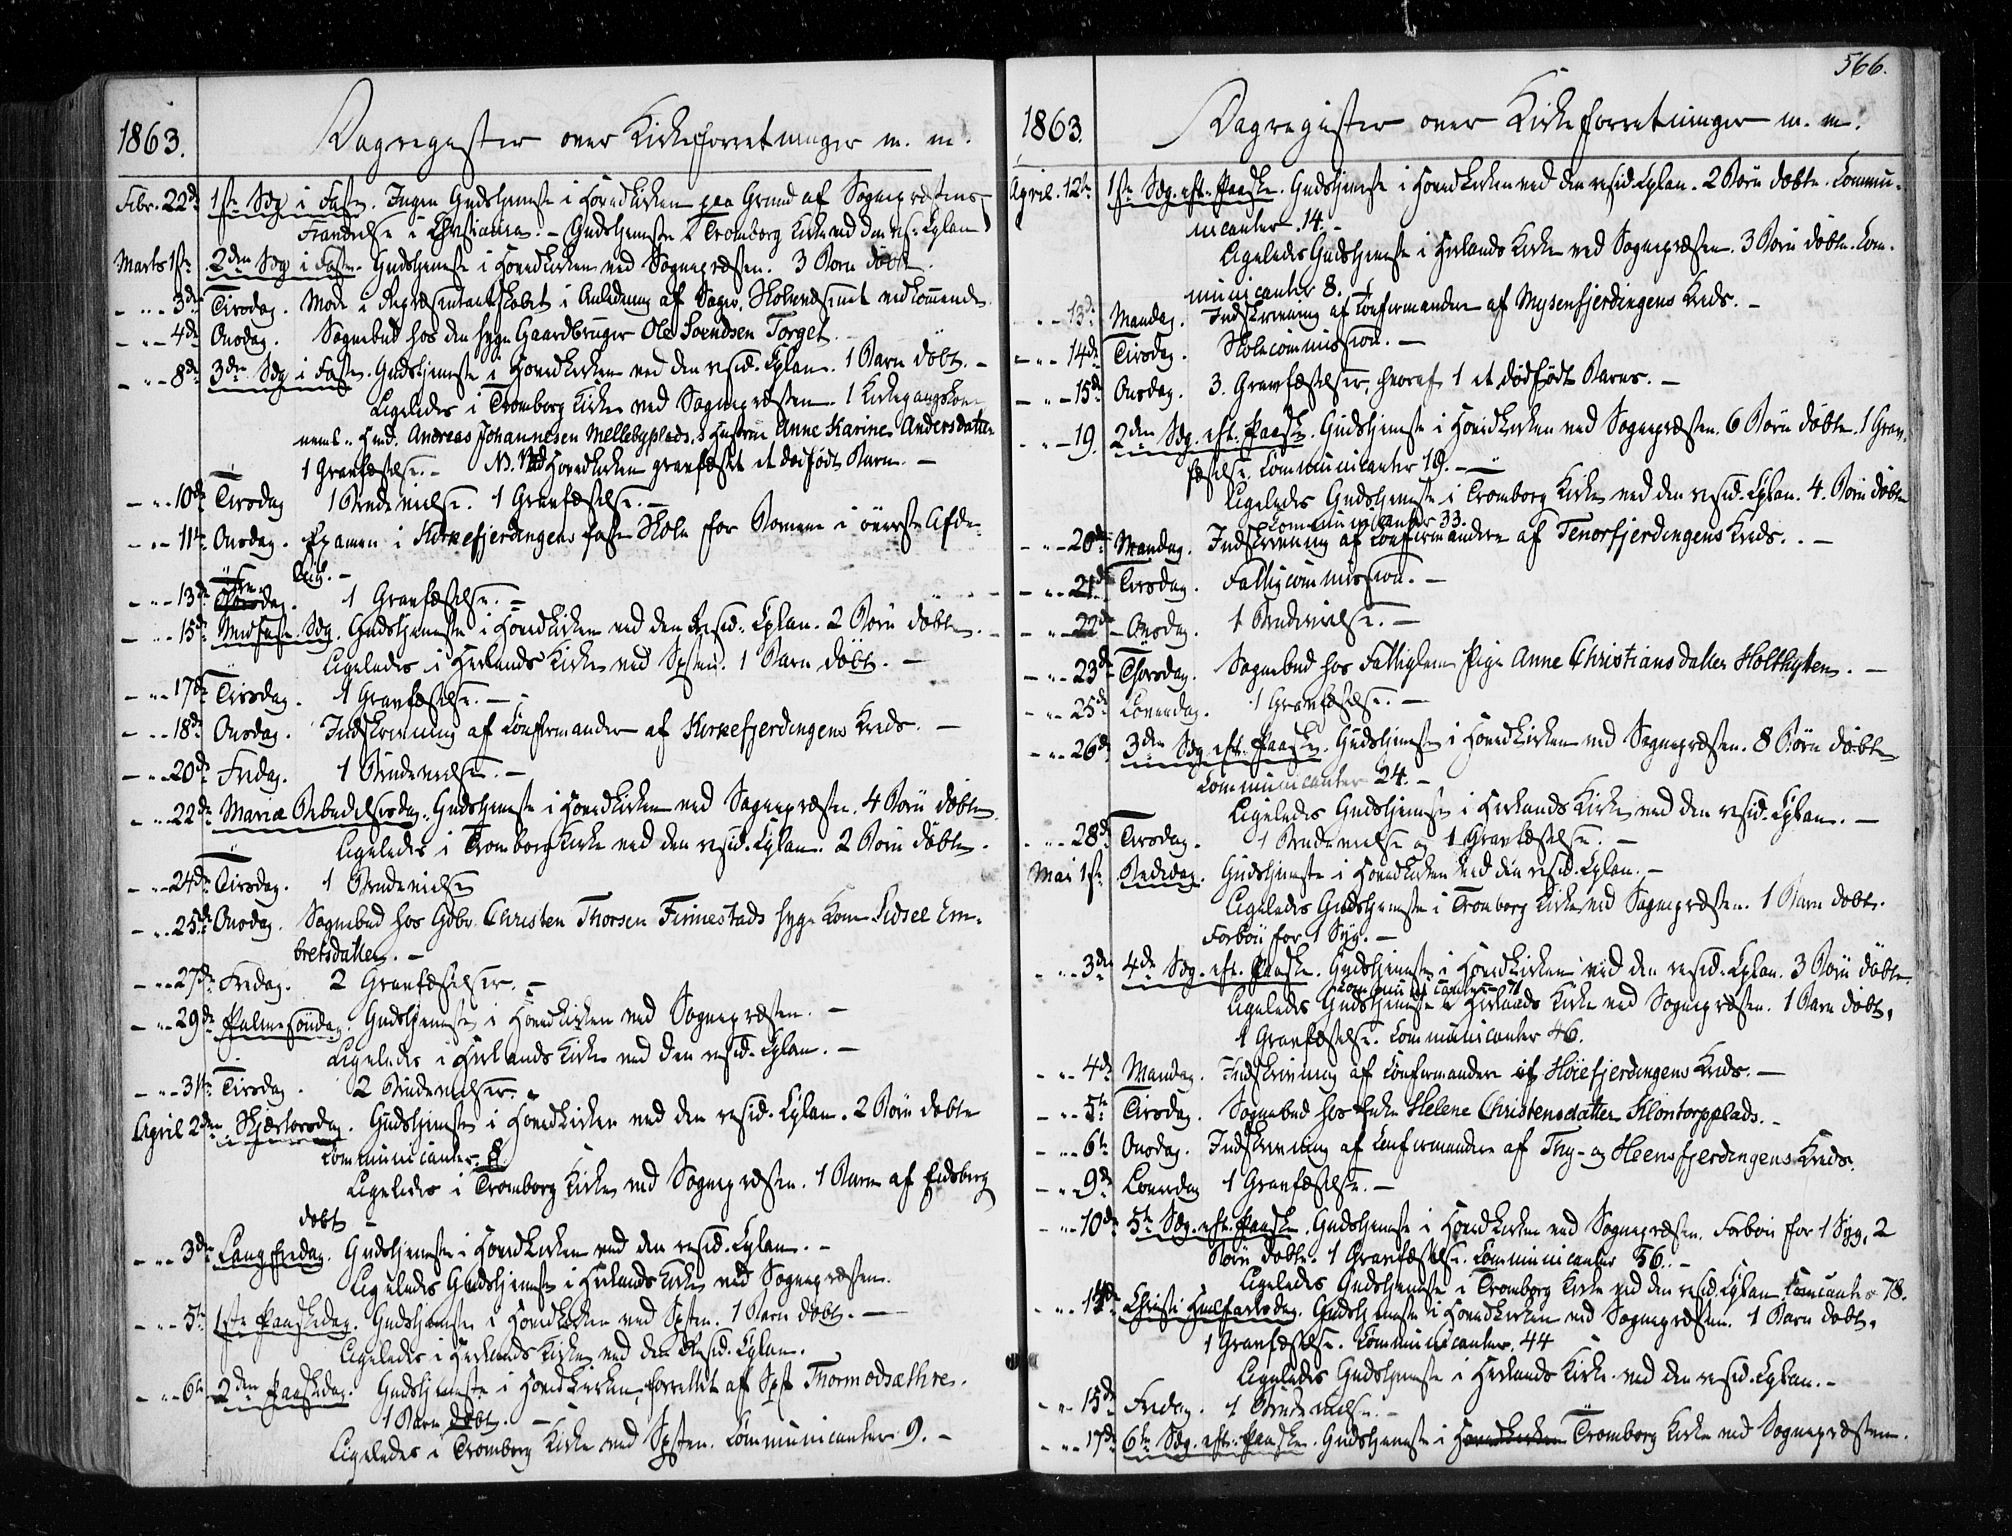 1863.
Dagregister over Kirkeforretninger m. m.
Febr. 22de 1ste Sdg i Faste. Ingen Gudstjeneste i Hovedkirken paa Grund af Sognepræstens
Fraværelse i Christiania. - Gudstjeneste i Tromborg Kirke ved den res: Cplan
Marts 1ste 2den Sdg i Faste. Gudstjeneste i Hovedkirken ved Sognepræsten. 3 Børn døbte.
— " — 3de Tirsdag. Møde i Repræsentantskabet i Anledning af Sager, Skolevæsenet vedkommende
— " — 4de Onsdag. Sognebud hos den syge Gaardbruger Ole Svendsen Torget.
— " — 8de 3die Sdg i Faste. Gudstjeneste i Hovedkirken ved den resid. Cplan. 1 Barn døbt. —
Ligeledes i Tromborg Kirke ved Sognepræsten. 1 Kirkegangskone
nemt. Hmd. Andreas Johannesen Mellebyplads's Hustru Anne Karine Andersdatter
1 Gravfæstelse. — NB. Ved Hovedkirken gravfæstet et dødfødt Barn. —
— " — 10de Tirsdag 1 Brudevielse. 1 Gravfæstelse. —
— " — 11te Onsdag. Examen i Kirkefjerdingens faste Skole for Børnene i øverste Afde-
ling. —
— " — 13de Fredag. 1 Gravfæstelse. —
— " — 15de Midfaste Sdg. Gudstjeneste i Hovedkirken ved den Resid. Cplan. 2 Børn døbte. —
Ligeledes i Herlands Kirke ved Spsten. 1 Barn døbt. —
— " — 17de Tirsdag. 1 Gravfæstelse. —
— " — 18de Onsdag. Indskrivning af Confirmander af Kirkefjerdingens Kreds. —
— " — 20de Fredag. 1 Brudevielse. —
— " — 22de Mariæ Bebudelsesdag. Gudstjeneste i Hovedkirken ved Sognepræsten. 4 Børn døbte.
Ligeledes i Tromborg Kirke ved den resid. Cplan. 2 Børn døbte.
— " — 24de Tirsdag. 1 Brudevielse
— " — 25de Onsdag. Sognebud hos Gdbr. Christen Thorsen Finnestads syge Kone Sidsel Em-
bretsdatter. —
— " — 27de Fredag. 2 Gravfæstelser. —
— " — 29de Palmesøndag. Gudstjeneste i Hovedkirken ved Sognepræsten. —
Ligeledes i Herlands Kirke ved den resid. Cplan. —
— " — 31te Tirsdag. 2 Brudevielser. —
April 2den Skjærtorsdag. Gudstjeneste i Hovedkirken ved den resid. Cplan. 2 Børn døbte
Communicanter. 8.
Ligeledes i Tromborg Kirke ved Sognepræsten. 1 Barn af Eidsberg
døbt —
— " — 3die Langfredag. Gudstjeneste i Hovedkirken ved den resid. Cplan. —
Ligeledes Gudstjeneste i Herlands Kirke ved Sognepræsten.
— " — 5te 1ste Paaskedag. Gudstjeneste i Hovedkirken ved Spsten. 1 Barn døbt. —
Ligeledes i Herlands Kirke ved den Resid. Cplan.
— " — 6te 2den Paaskedag. Gudstjeneste i Hovedkirken, forrettet af Spst Thormodsæthre.
1 Barn døbt. —
Ligeledes i Tromborg Kirke ved Spsten. Communicanter 9. —
566.
1863.
Dagregister over Kirkeforretninger m. m.
April. 12te 1ste Sdg. eft. Paaske. Gudstjeneste i Hovedkirken ved den resid. Cplan. 2 Børn døbte. Commu-
nicanter. 14. —
Ligeledes Gudstjeneste i Herlands Kirke ved Sognepræsten. 3 Børn døbte. Com-
municanter 8. —
— " — 13de Mandag. Indskrivning af Confirmander af Mysenfjerdingens Kreds. —
— " — 14de Tirsdag. Skolecommission. —
— " — 15de Onsdag. 3. Gravfæstelser, hvoraf 1 et dødfødt Barns. —
— " — 19. 2den Sdg. eft. Paaske. Gudstjeneste i Hovedkirken ved Sognepræsten. 6 Børn døbte. 1 Grav-
fæstelse. Communicanter 19. —
Ligeledes Gudstjeneste i Tromborg Kirke ved den resid. Cplan. 4. Børn døbte
Communicanter 33.
— " — 20de Mandag. Indskrivning af Confirmander af Tenorfjerdingens Kreds. —
— " — 21de Tirsdag. Fattigcommission. —
— " — 22de Onsdag. 1 Brudevielse. —
— " — 23de Thorsdag. Sognebud hos Fattiglem Pige Anne Christiansdatter Holthytten. —
— " — 25de Løverdag. 1 Gravfæstelse. —
— " — 26de 3die Sdg eft. Paaske. Gudstjeneste i Hovedkirken ved Sognepræsten. 8 Børn døbte
Communicanter 24. —
Ligeledes Gudstjeneste i Herlands Kirke ved den resid. Cplan. —
— " — 28de Tirsdag. 1 Brudevielse og 1 Gravfæstelse. —
Mai 1ste Bededag. Gudstjeneste i Hovedkirken ved den resid. Cplan. —
Ligeledes Gudstjeneste i Tromborg Kirke ved Sognepræsten. 1 Barn døbt.
Forbøn for 1 Syg. —
— " — 3die 4de Sdg. eft. Paaske. Gudstjeneste i Hovedkirken ved den resid. Cplan. 3 Børn døbte.
Communicanter 71
Ligeledes Gudstjeneste i Herlands Kirke ved Sognepræsten. 1 Barn døbt.
1 Gravfæstelse. Communicanter 46.
— " — 4de Mandag. Indskrivning af Confirmander af Høiefjerdingens Kreds. —
— " — 5te Tirsdag. Sognebud hos Enke Helene Christensdatter Klontorpplads. —
— " — 6te Onsdag. Indskrivning af Confirmander af Thy- og Heensfjerdingens Kreds.
— " — 9de Løverdag 1 Gravfæstelse. —
— " — 10de 5te Sdg. eft. Paaske. Gudstjeneste i Hovedkirken ved Sognepræsten. Forbøn for 1 Syg. 2
Børn døbte. 1 Gravfæstelse. Communicanter 56. —
Ligeledes Gudstjeneste i Tromborg Kirke ved den resid. Cplan Comcanter 78.
— " — 14de Christi Himmelfartsdag. Gudstjeneste i Hovedkirken ved Sognepræsten. 1 Barn døbt.
1 Gravfæstelse. Communicanter. 44
Ligeledes Gudstjeneste i Herlands Kirke ved den resid. Cplan. —
— " — 15de Fredag. 1 Brudevielse. —
— " — 17de 6te Sdg. eft. Paaske. Gudstjeneste i Hovedkirken Tromborg Kirke ved Sognepræsten.